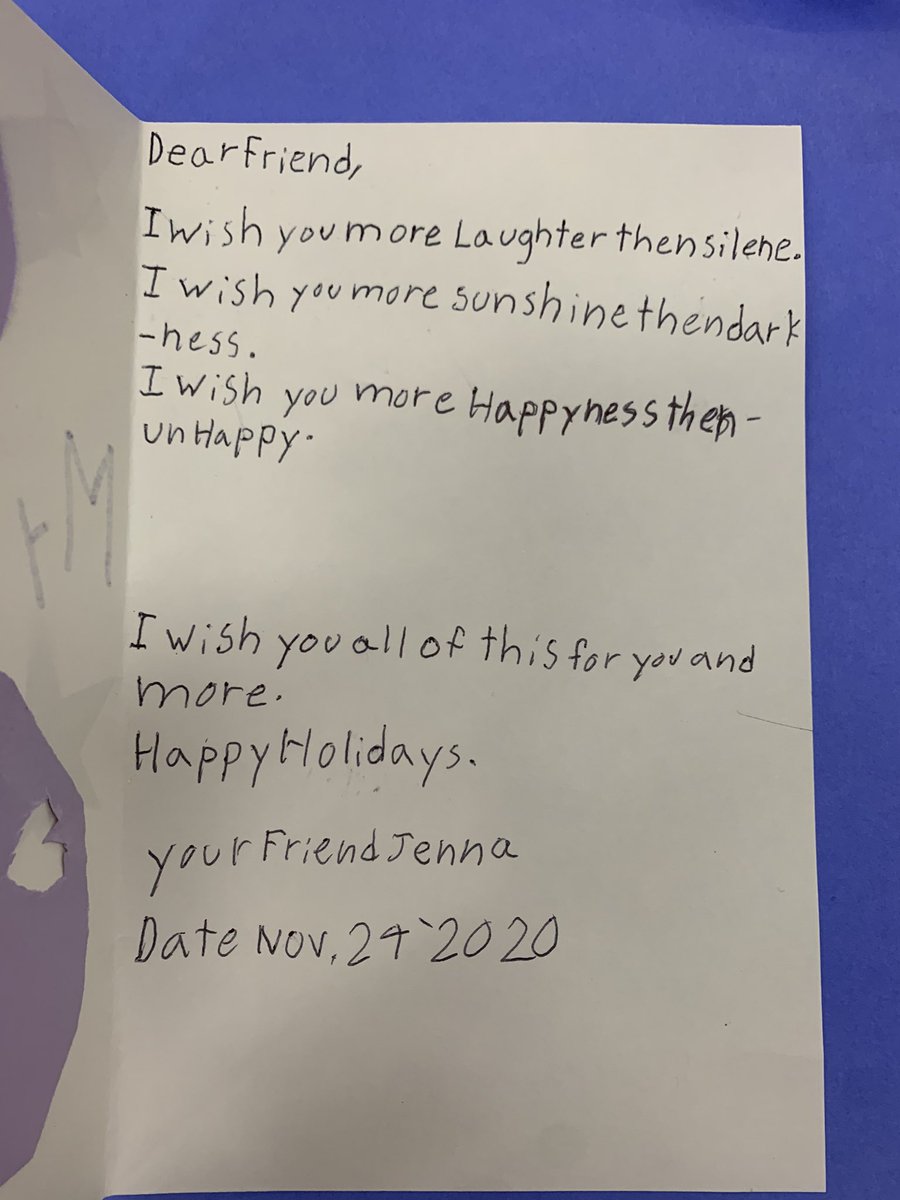 Dear Friend,
I wish you more Laughter then silene.
I wish you more sunshine then dark
-ness.
I wish you more Happyness then-
unHappy.
I wish you all of this for you and
more.
Happy Holidays.
your Friend Jenna
Date Nov, 24 2020